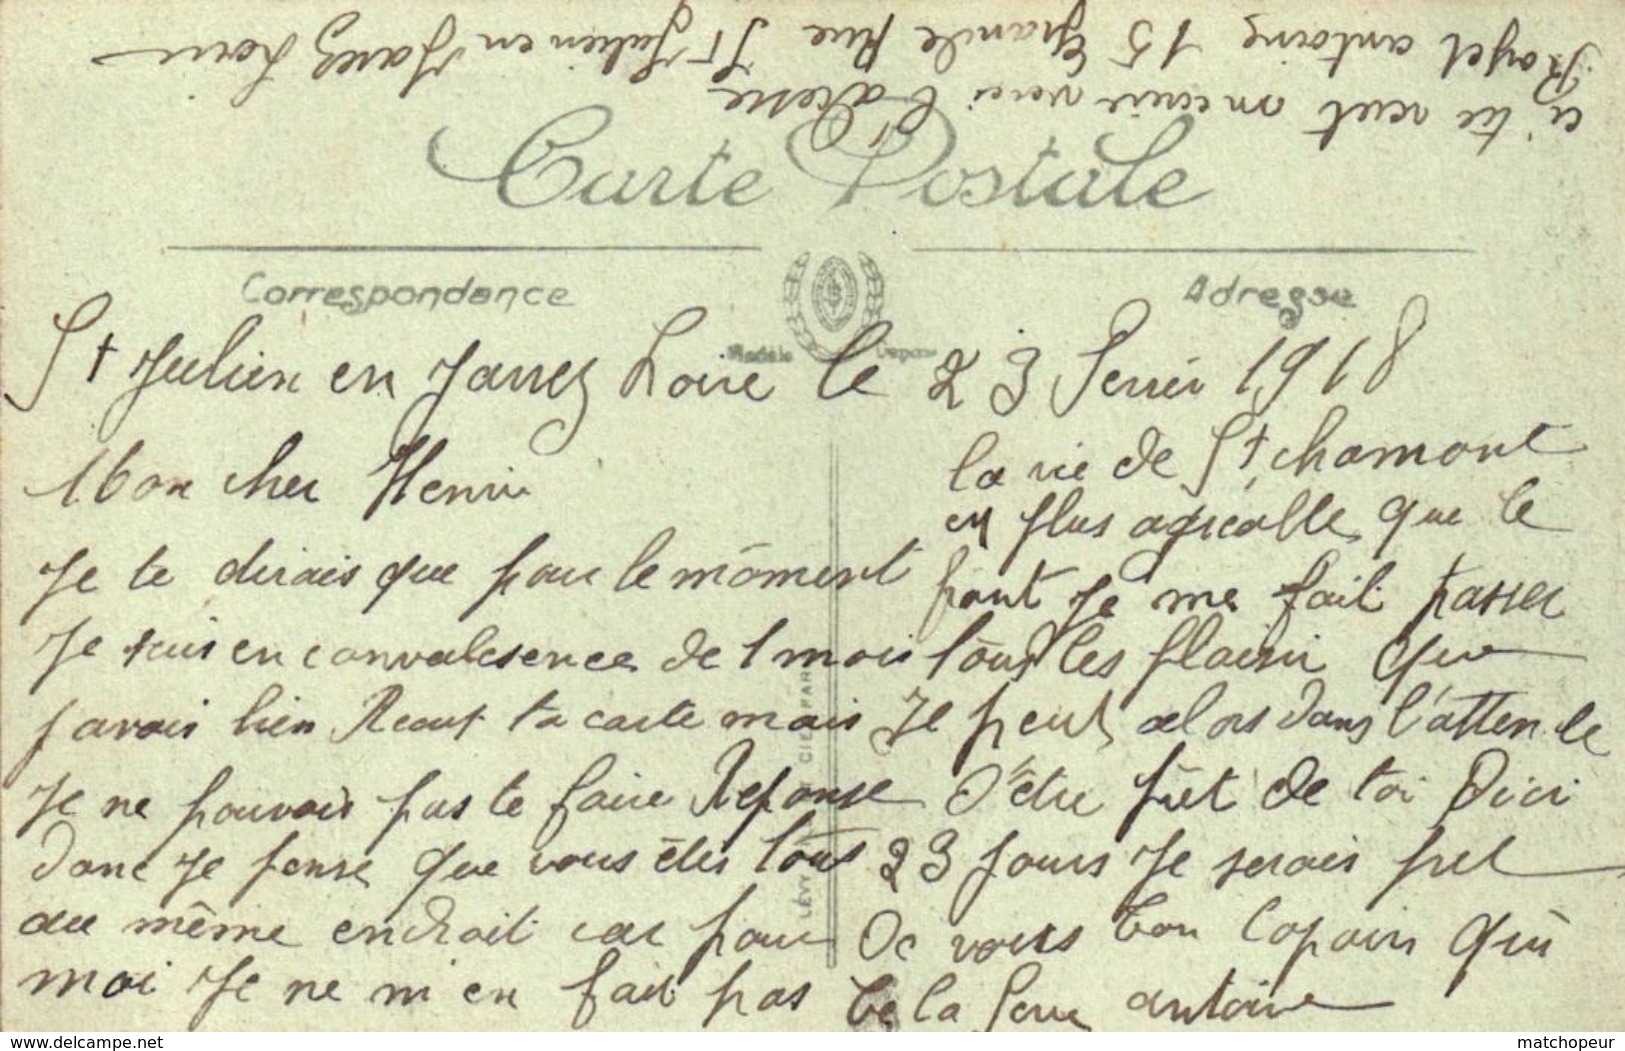 ci tu veut mecrire voici l'adresse
Royet antoine 15 Grande Rue St Julien en Jarez Loire
Carte Postale
Correspondance
Adresse
Modèle Déposé
St Julien en Jarrez Loire le 23 Fevrier 1918
Mon cher Henri
Je te dirais que pour le moment
Je suis en convalesence de 1 mois
javais bien Recut ta carte mais
Je ne pouvais pas te faire Reponse
donc Je pense que vous étes tous
au même endroit car pour
moi Je ne m'en fait pas
la vie de St chamont
est plus agréable que le
front Je me fait passer
tous les plaisir que
Je peut alors dans l'attente
d'étre prêt de toi Dici
23 jours Je serais pret
De vous ton Copain qui
te la serre antoine
LÉVY ET CIE PARIS
www.delcampe.net
matchopeur